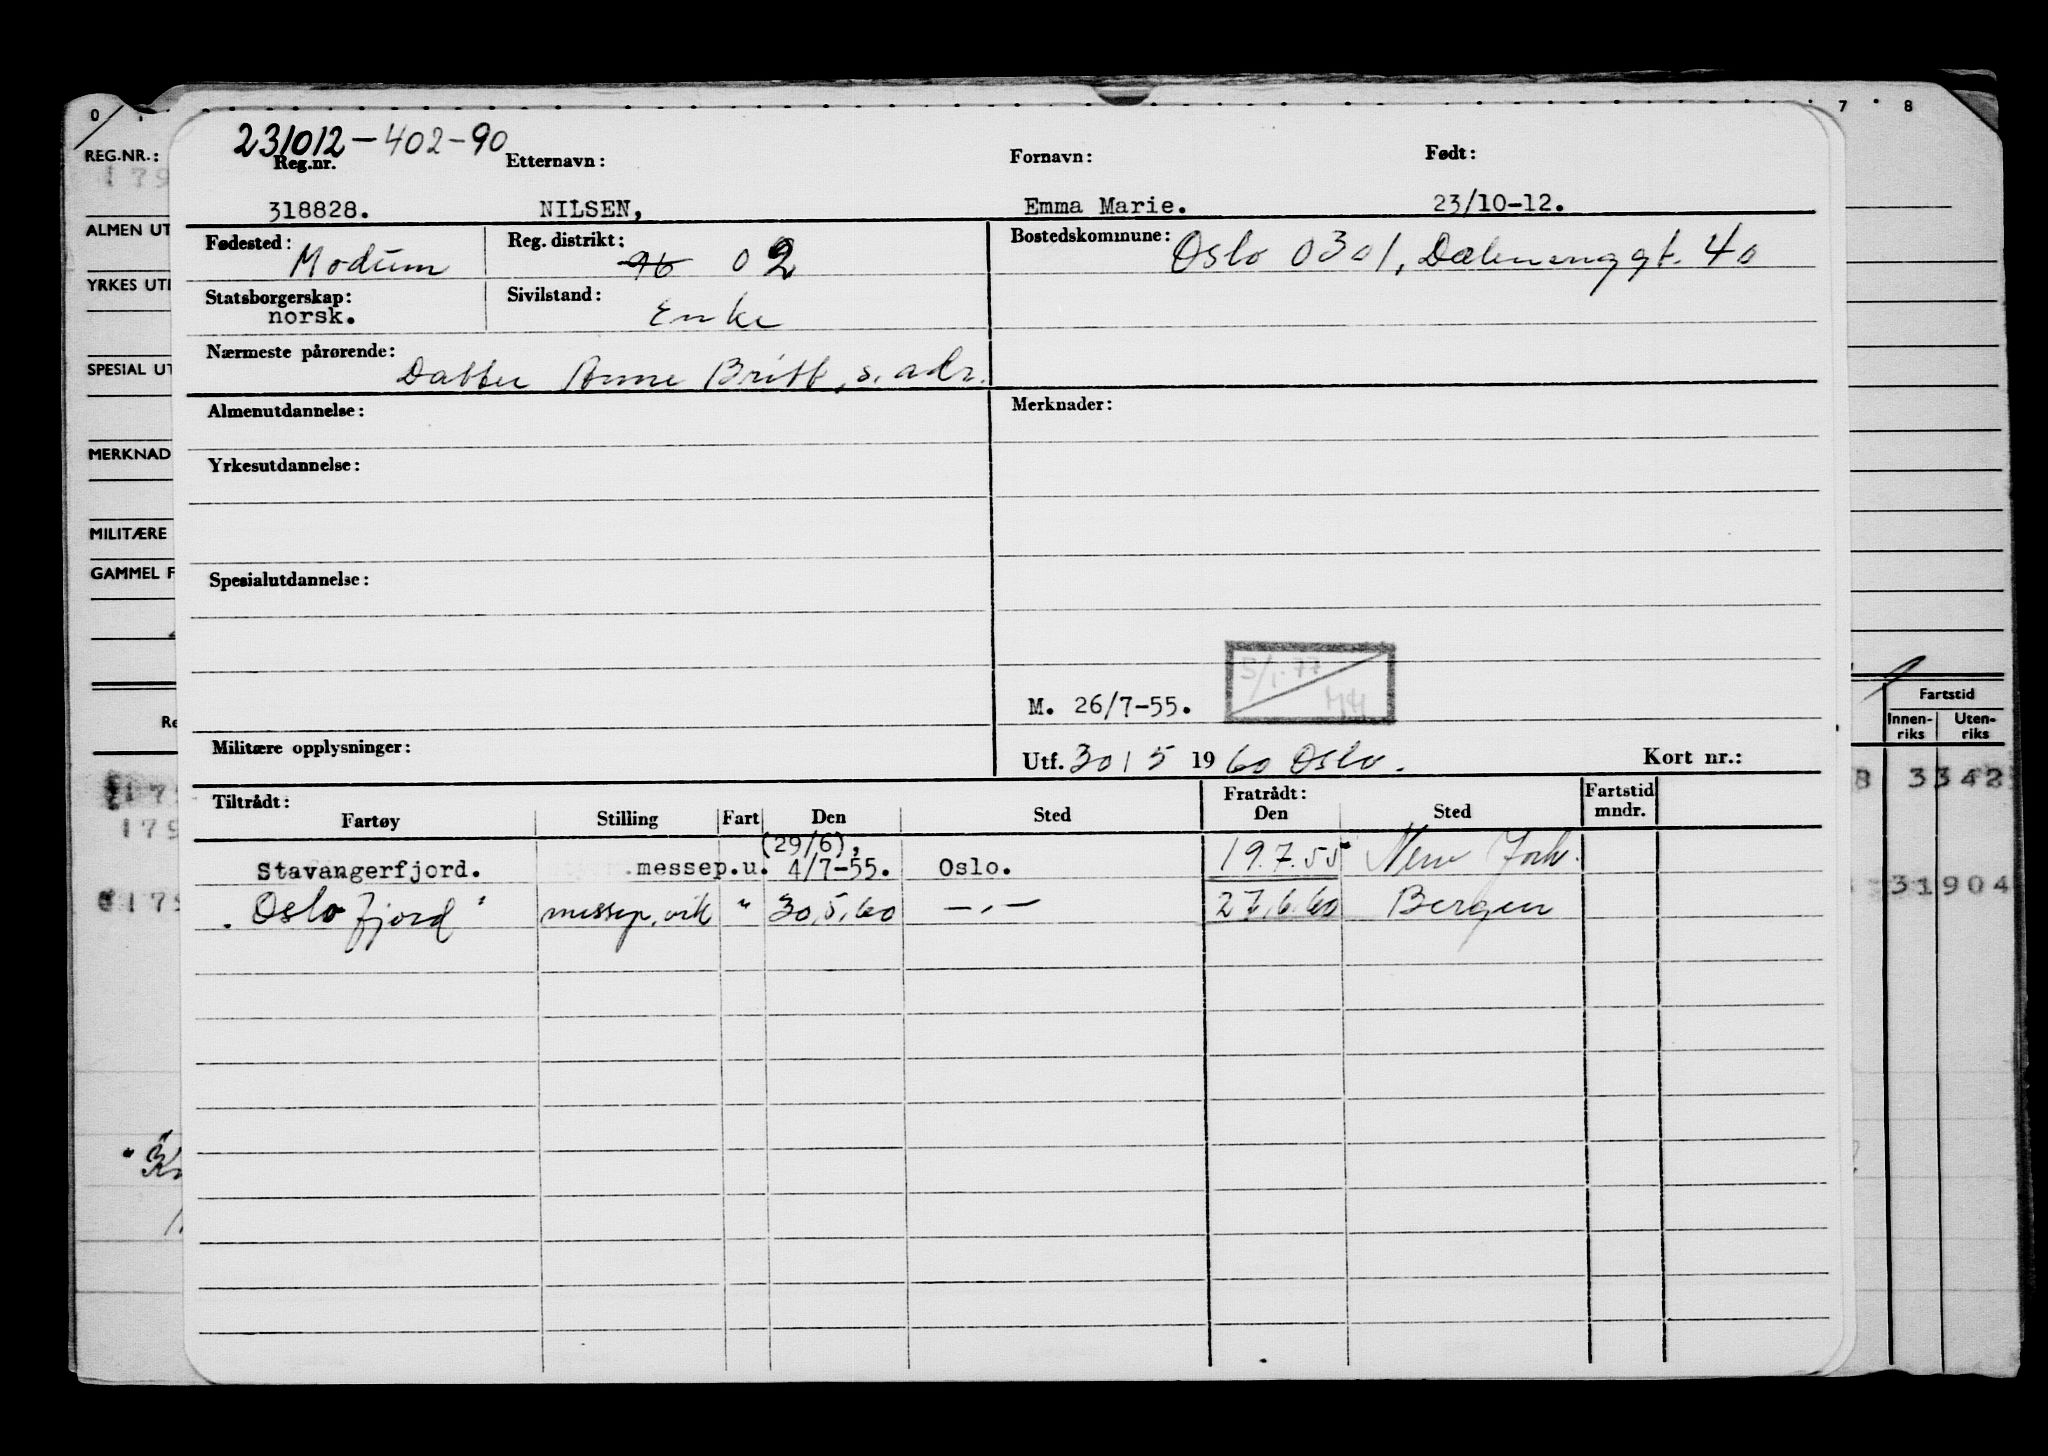 0 7 8
231012-402-90
REG.NR.: Reg.nr. Etternavn: Fornavn: Født:
179
318828. NILSEN, Emma Marie. 23/10-12.
ALMEN UT
Fødested: Modum Reg. distrikt: 96 02 Bostedskommune: Oslo 0301, Dælenenggt. 40
YRKES UTI
Statsborgerskap: norsk. Sivilstand: Enke
SPESIAL UT
Nærmeste pårørende: Datter Anne Britt, s. adr.
Almenutdannelse: Merknader:
MERKNAD
Yrkesutdannelse:
MILITÆRE
GAMMEL F
Spesialutdannelse:
5/1-77
M. 26/7-55.
Fartstid
Innen-riks Uten-riks
Militære opplysninger: Utf. 30/5 1960 Oslo. Kort nr.:
8 3342
Tiltrådt: Fratrådt: Fartstid mndr.
Fartøy Stilling Fart Den Sted Den Sted
179
(29/6),
Stavangerfjord. messep.u. 4/7-55. Oslo. 19.7.55 New York.
179 31904
"Oslofjord" messep.vik " 30.5.60 -"- 27.6.60 Bergen